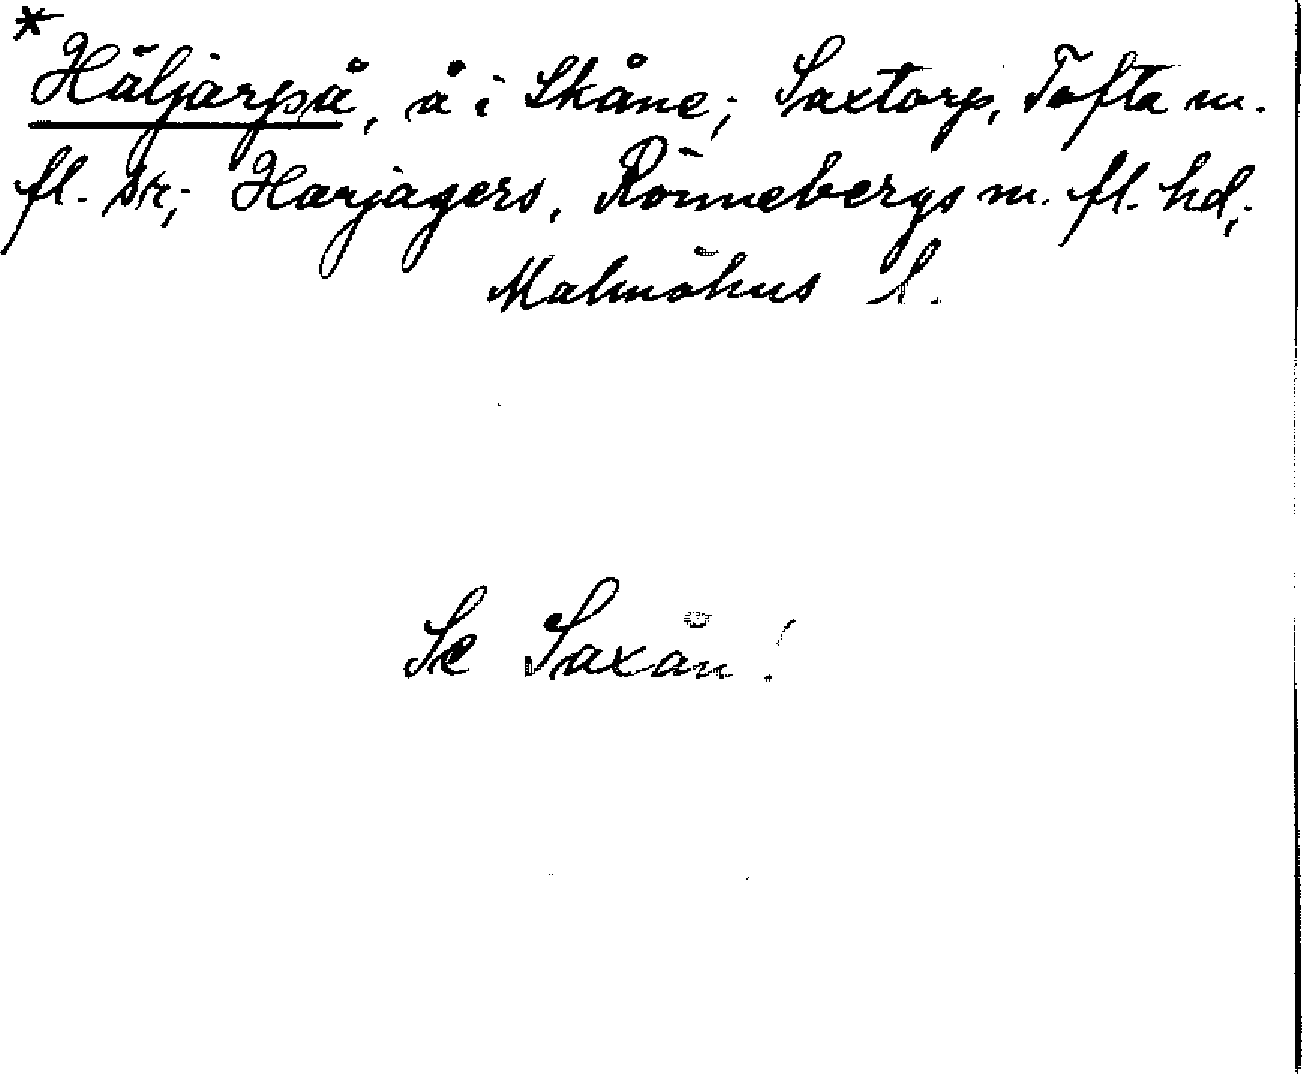 * Häljarpå, å i Skåne; Saxtorp, Tofta m.
fl. sk; Harjagers, Rönnebergs m. fl. hd;
Malmöhus l.
Se Saxån!